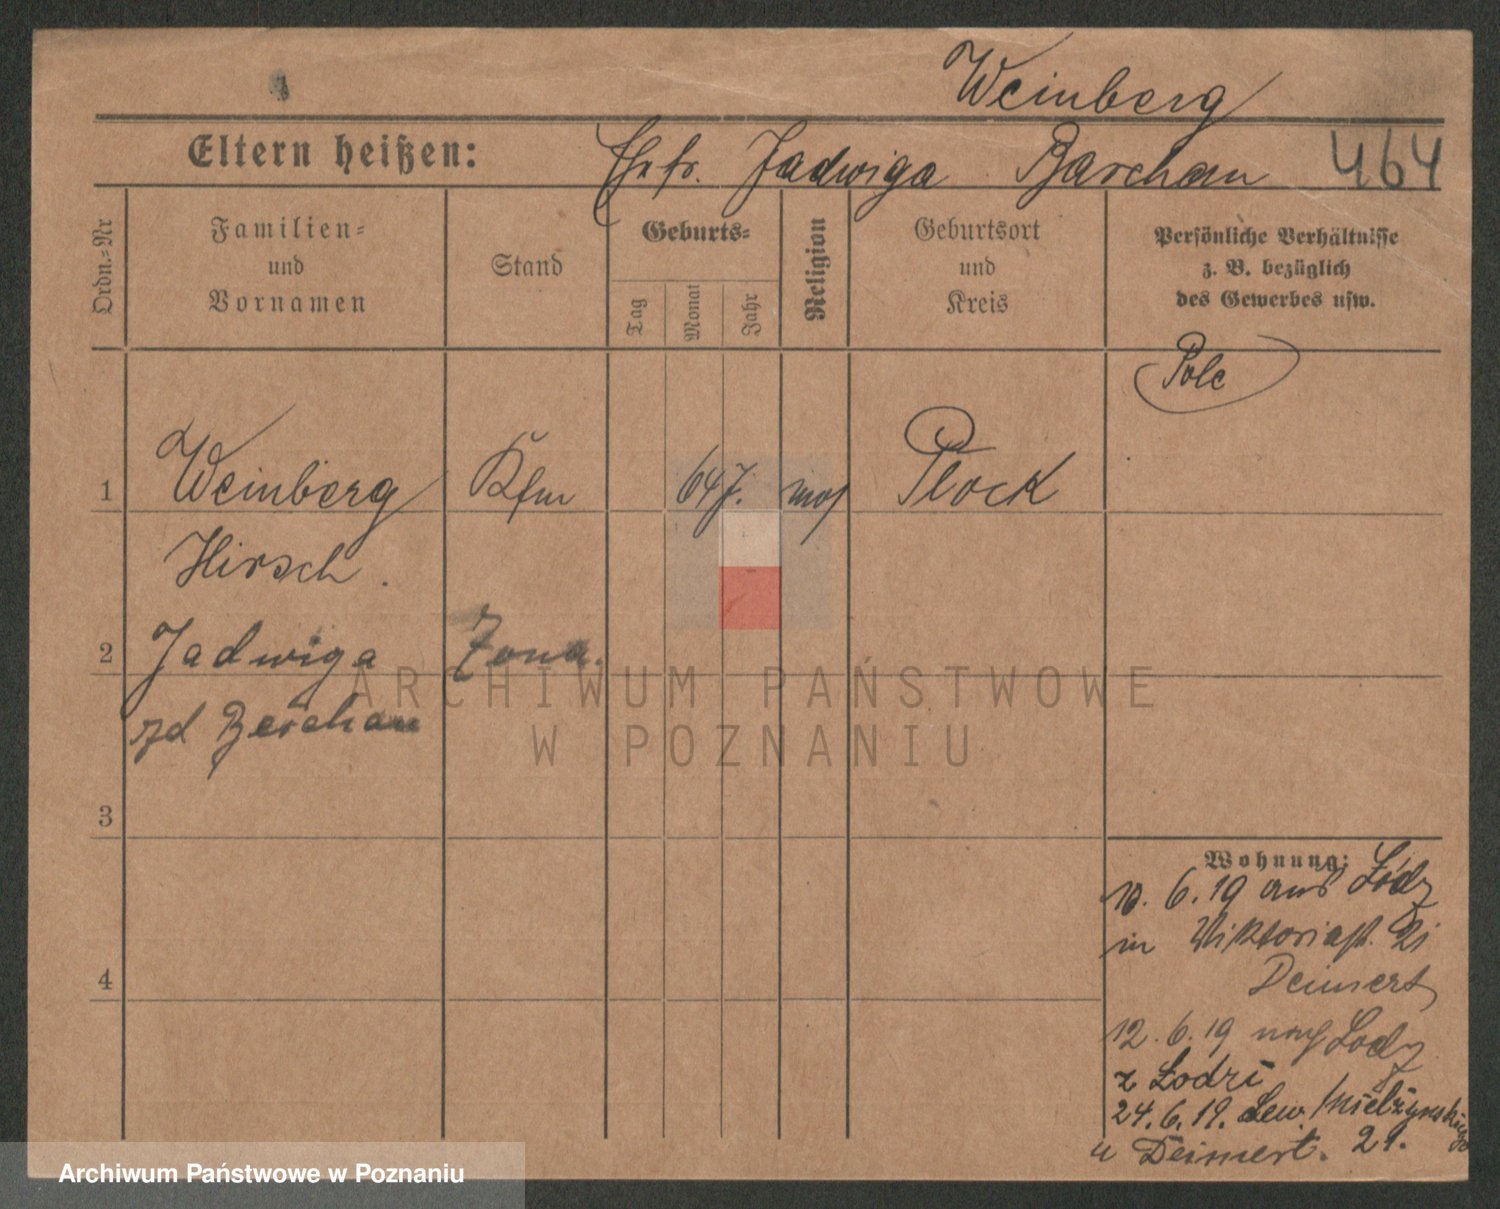 Weinberg
Eltern heißen: Ehefr. Jadwiga Barchan 464
Ordn.-Nr
Familien- und Vornamen
Stand
Geburts-
Tag
Monat
Jahr
Religion
Geburtsort und Kreis
Persönliche Verhältnisse
z. B. bezüglich
des Gewerbes usw.
Pole
1 Weinberg Kfm 647. mos Plock
Hirsch.
2 Jadwiga Żona.
zd Berchan
ARCHIWUM PAŃSTWOWE
W POZNANIU
3
4
Wohnung:
10. 6. 19 aus Łódz
in Viktoriast. 21
Deimert
12. 6. 19 nach Lodz
z Łodzi
24. 6. 19. Sew. Mielżynskiego
u Deimert. 21.
Archiwum Państwowe w Poznaniu